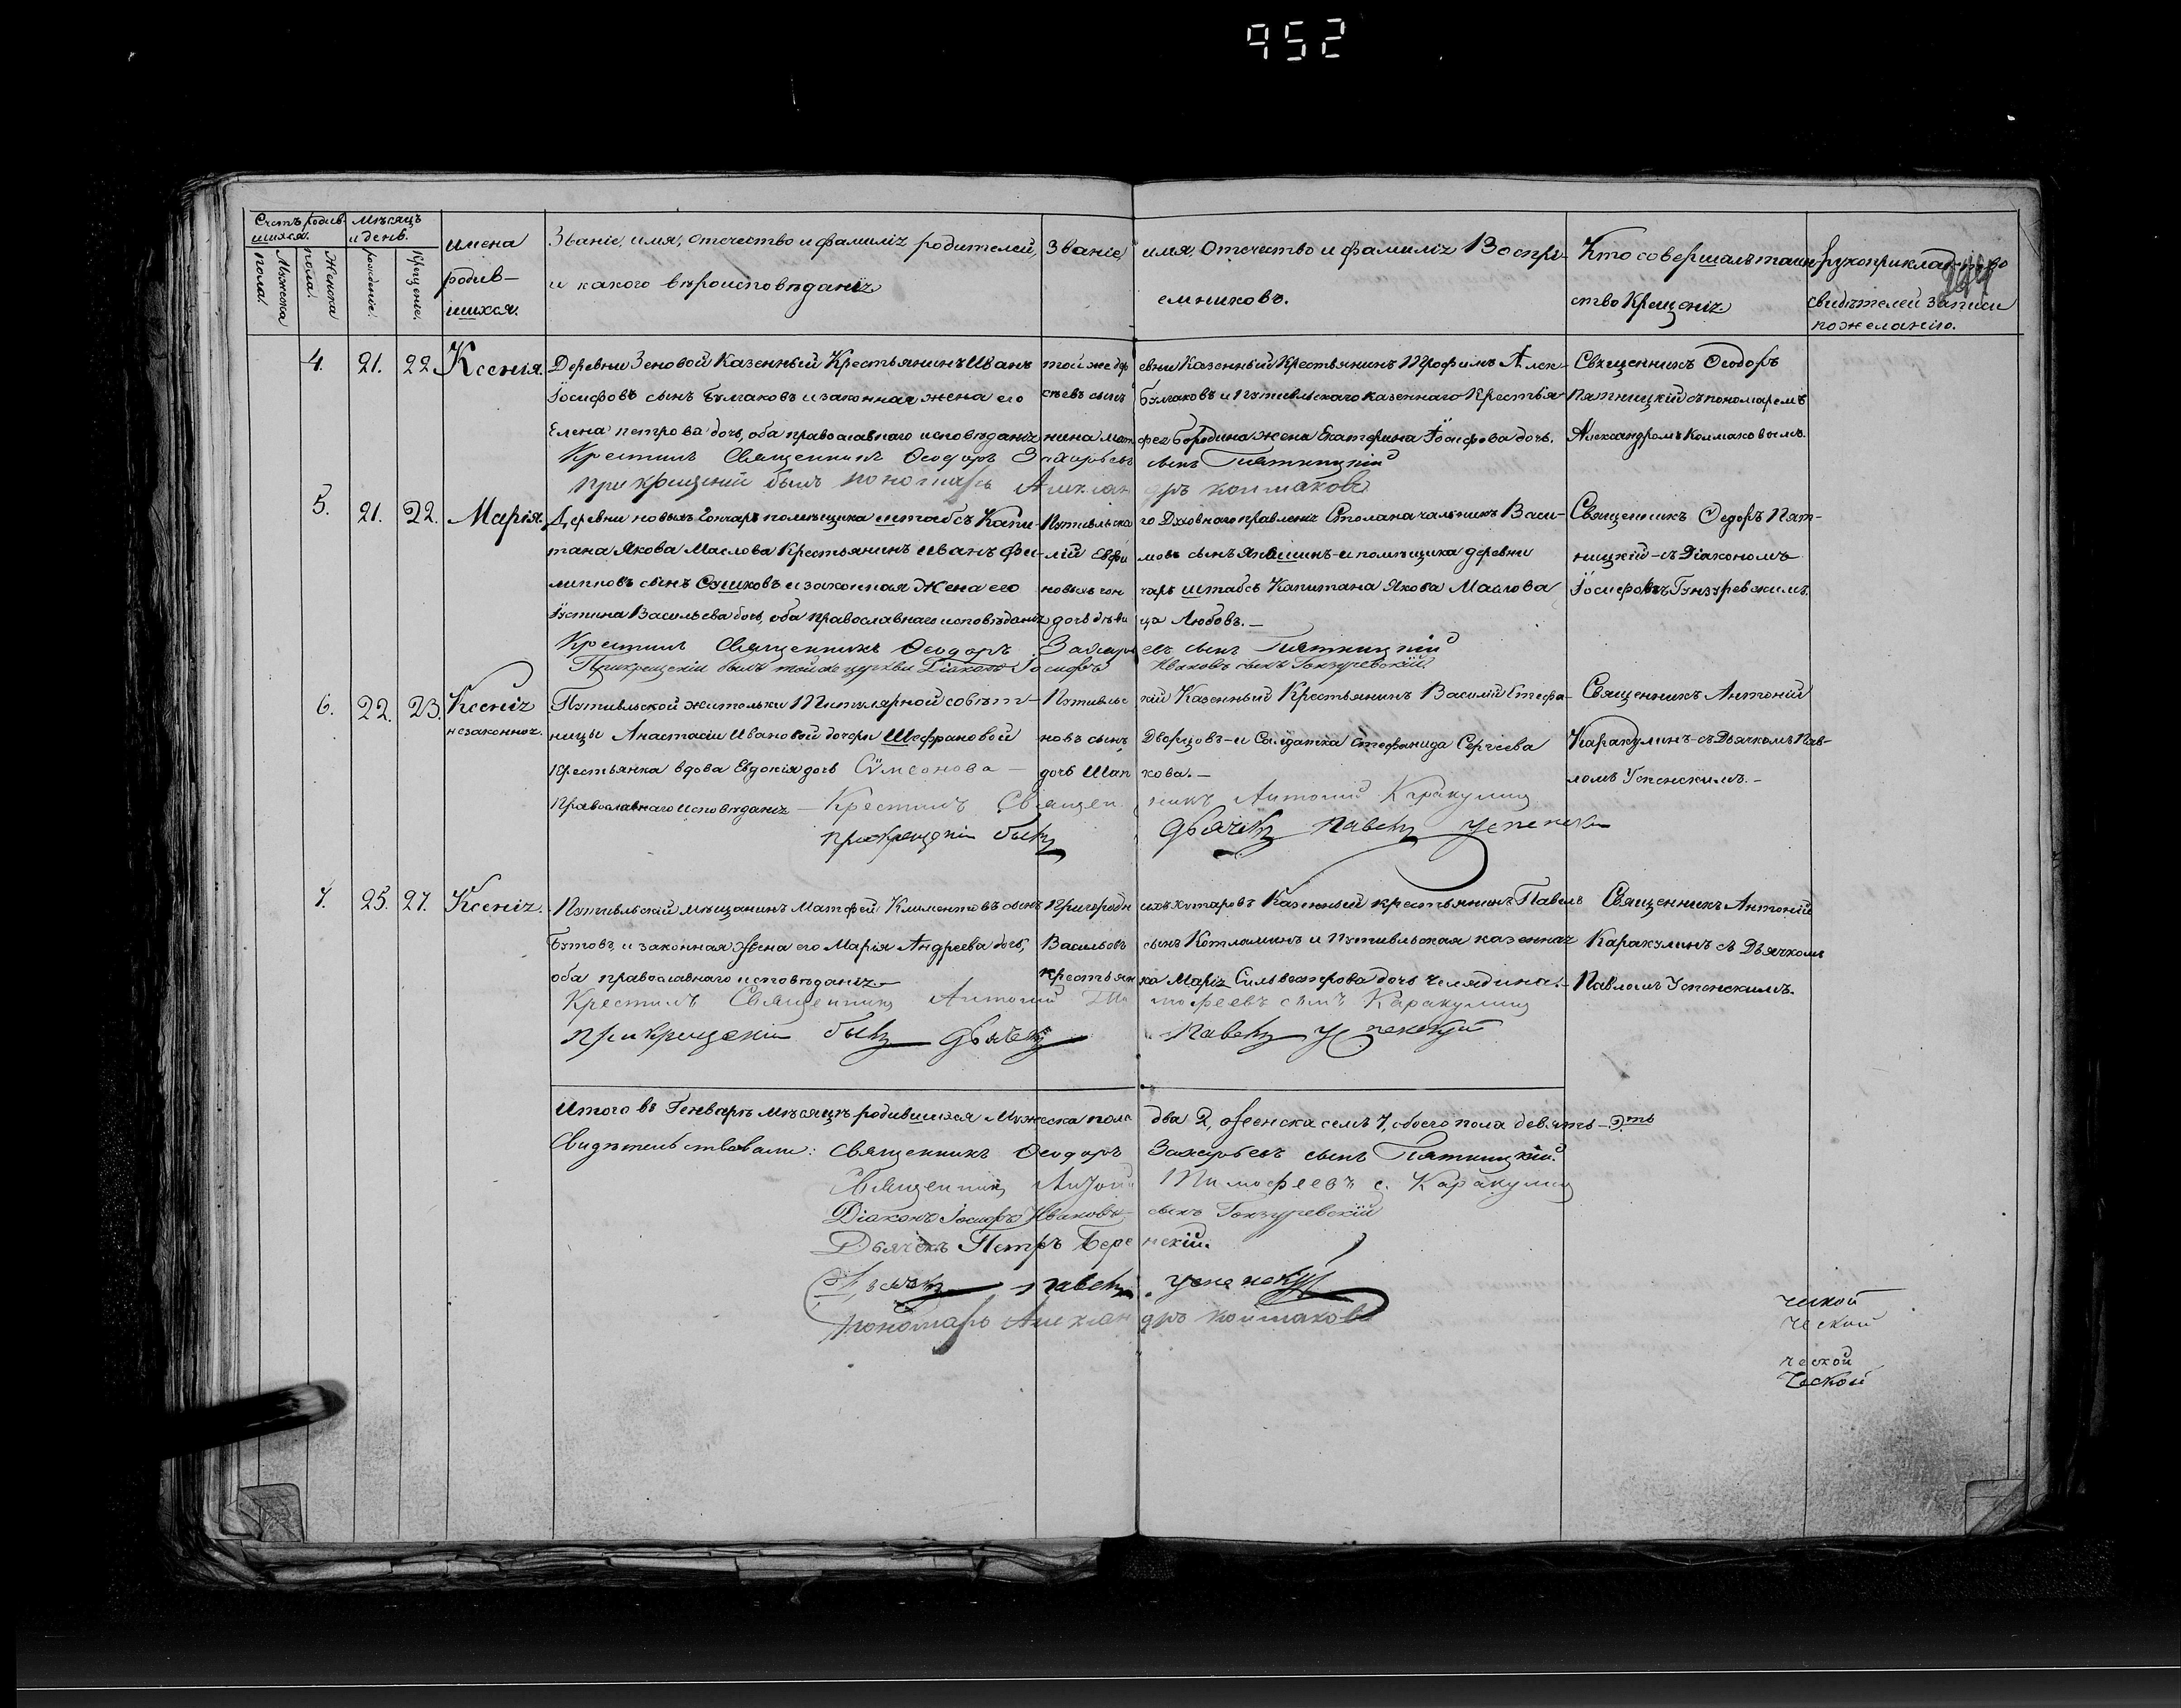 952
Счетъ родив- Мѣсяцъ
шихся. и день.
Мужеска пола.
Женска пола.
рожденіе.
Крещеніе.
имена
родив-
шихся.
Званіе, имя, отечество и фамилія родителей,
и какого вѣроисповѣданія
Званіе, имя, отечество и фамилія Воспрі-
емниковъ.
Кто совершалъ таин-
ство Крещенія
Рукоприкладство
свидѣтелей записи
по желанію.
4. 21. 22. Ксенія.
Деревни Зеновой Казенный Крестьянинъ Иванъ
Іосифовъ сынъ Булгаковъ и законная жена его
Елена петрова дочь, оба православнаго исповѣданія
той же деревни Казенный Крестьянинъ Трофимъ Алек-
сѣевъ сынъ Булгаковъ и Путивльскаго казеннаго Крестья-
нина Матфея Бородина жена Екатерина Іосифова дочь.
Священникъ Ѳеодоръ
Пятницкій съ пономаремъ
Александромъ Колмаковымъ.
Крестилъ Священникъ Ѳеодоръ Захарьевъ сынъ Пятницкій
при крещеніи былъ пономарь Александръ колмаковъ
5. 21. 22. Марія.
Деревни новыхъ Гончаръ помѣщика штабсъ Капи-
тана Якова Маслова Крестьянинъ Иванъ Фи-
липповъ сынъ Сушковъ и законная Жена его
Іустина Васильева дочь, оба православнаго исповѣданія
Путивльскаго Духовнаго правленія Столоначальникъ Васи-
лій Евфимовъ сынъ Яньшинъ и помѣщика деревни
новыхъ гончаръ штабсъ Капитана Якова Маслова
дочь дѣвица Любовъ.—
Священникъ Ѳедоръ Пят-
ницкій съ Діакономъ
Іосифомъ Гонзуревскимъ.
Крестилъ Священникъ Ѳеодоръ Захарьевъ сынъ Пятницкій
При крещеніи былъ той же церкви Діаконъ Іосифъ Ивановъ сынъ Гонзуревскій.
6. 22. 23. Ксенія
незаконная.
Путивльской жительки Титулярной совѣт-
ницы Анастасіи Ивановой дочери Шефрановой
крестьянка вдова Евдокія дочь Сѵмеонова —
Православнаго Исповѣданія —
Путивльскій Казенный Крестьянинъ Василій Стефа-
новъ сынъ Дворцовъ и Салдатка Стефанида Сергѣева
дочь Шапкова.—
Священникъ Антоній
Каракулинъ съ Дьячкомъ Пав-
ломъ Успенскимъ.—
Крестилъ Священникъ Антоній Каракулинъ
при крещеніи былъ Дьячекъ Павелъ Успенскій
7. 25. 27. Ксенія.
Путивльскій мѣщанинъ Матфей Климентовъ сынъ
Бутовъ и законная Жена его Марія Андреева дочь,
оба православнаго исповѣданія.—
Пригороднихъ хутаровъ Казенный крестьянинъ Павелъ
Васильевъ сынъ Котляминъ и Путивльская казенная
крестьянка Марія Сильвестрова дочь Челядина.—
Священникъ Антоній
Каракулинъ съ Дьячкомъ
Павломъ Успенскимъ.
Крестилъ Священникъ Антоній Тимофеевъ сынъ Каракулинъ
при крещеніи былъ дьячекъ Павелъ Успенскій
Итого въ Генварѣ мѣсяцѣ родившихся Мужеска пола два 2, Женска семь 7, обоего пола девять — 9.ть
Свидѣтельствовали: Священникъ Ѳеодоръ Захарьевъ сынъ Пятницкій.
Священникъ Антоній Тимофеевъ с. Каракулинъ
Діаконъ Іосифъ Ивановъ сынъ Гонзуревскій
Дьячекъ Петръ Беренскій.
Дьячекъ Павелъ Успенскій
пономарь Александръ колмаковъ
ческой
ческой
ческой
ческой